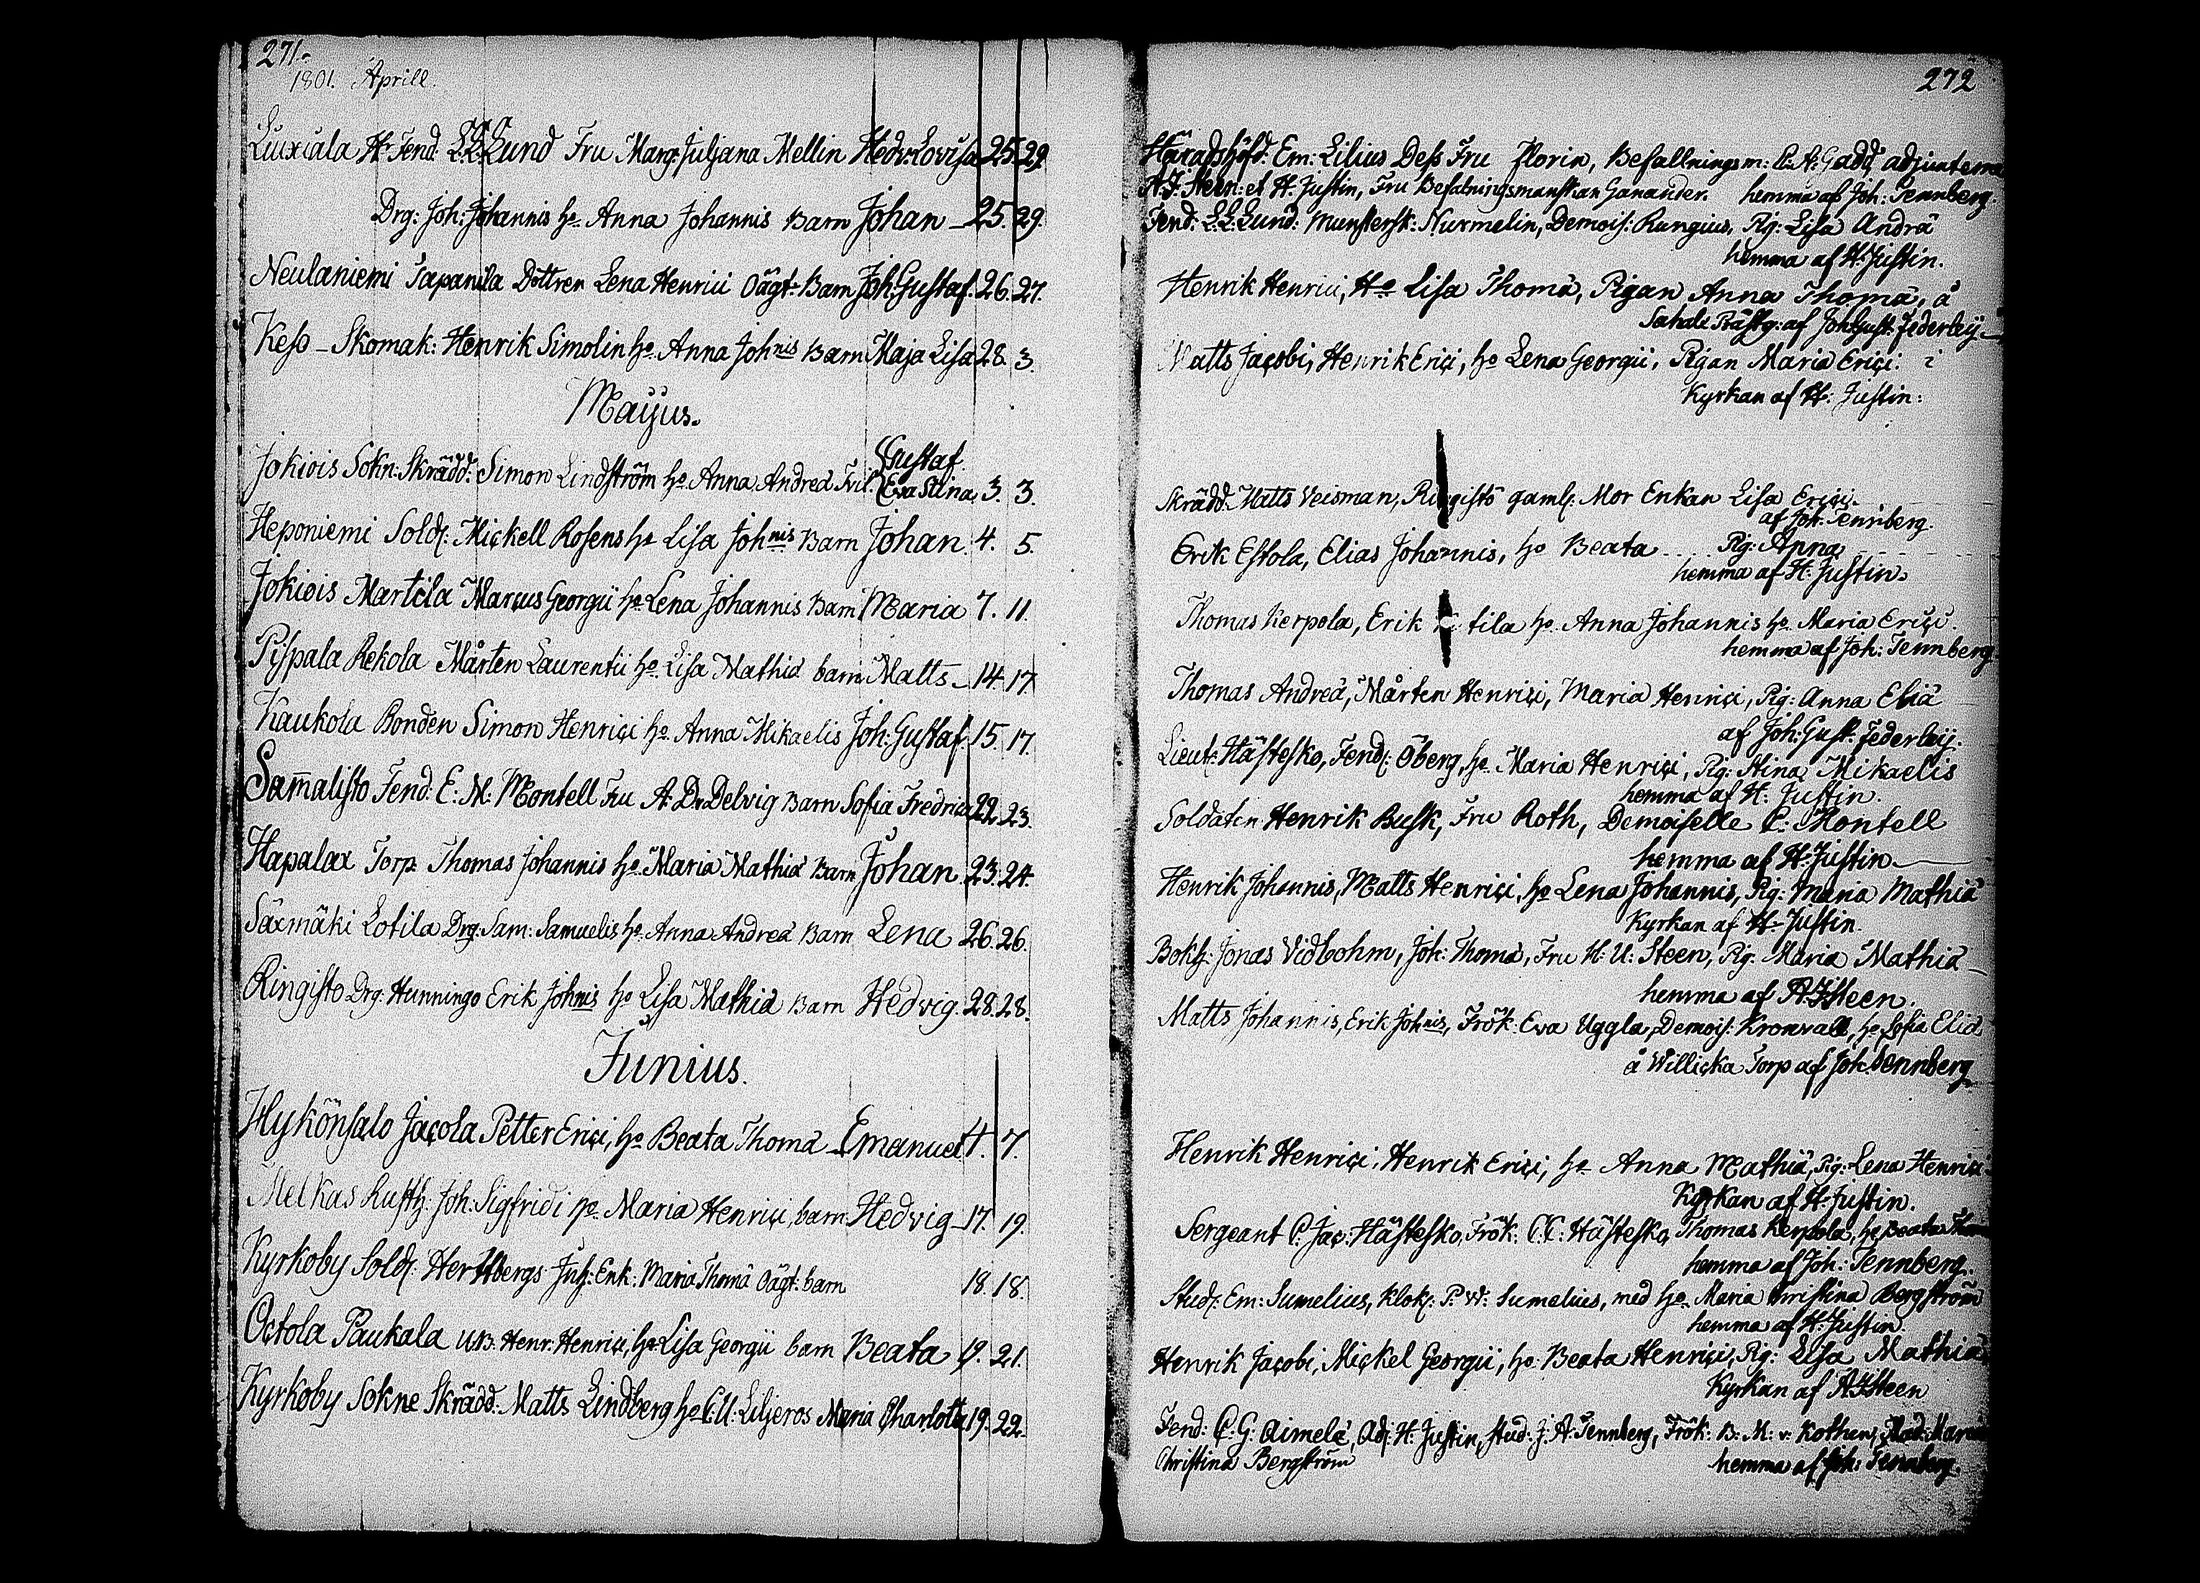 271.
1801. Aprill.
Liuxiala Hr Fend. L:L:Lund Fru Marg: Juljana Mellin Hedv: Lovisa 25. 29.
Drg: Joh: Johannis ho Anna Johannis Barn Johan 25. 29.
Neulaniemi Tapanila Dottren Lena Henrici Oägt: Barn Joh: Gustaf. 26. 27.
Keso Skomak: Henrik Simolin ho Anna Johnis Barn Maja Lisa 28. 3.
Mayus.
Gustaf
Jokiois Sokn: Skrädd: Simon Lindström ho Anna Andreä Tvil: Eva Stina 3. 3.
Heponiemi Sold: Mickell Rosens ho Lisa Johnis Barn Johan. 4. 5.
Jokiois Martila Marcus Georgii ho Lena Johannis Barn Maria 7. 11.
Pispala Rekola Mårten Laurentii ho Lisa Mathiä barn Matts 14. 17.
Kaukola Bonden Simon Henrici ho Anna Mikaelis Joh: Gustaf 15. 17.
Sammalisto Fend: E: M: Montell Fru A: D: Delvig Barn Sofia Fredrica 22. 23.
Hapalax Torp. Thomas Johannis ho Maria Mathiä Barn Johan 23. 24.
Säxmäki Lotila Drg: Sam: Samuelis ho Anna Andreä Barn Lena 26. 26.
Ringisto Drg: Hunningo Erik Johnis ho Lisa Mathiä Barn Hedvig. 28. 28.
Junius.
Hykönsalo Jacola Petter Erici, ho Beata Thomä Emanuel 4. 7.
Melkas Joh: Sigfridi ho Maria Henrici, barn Hedvig 17. 19.
Kyrkoby Sold: Hertzbergs Enk: Maria Thomä Oägt: barn 18. 18.
Octola Paukala Henr: Henrici, ho Lisa Georgii barn Beata 19. 21.
Kyrkoby Sokne Skrädd: Matts Lindberg ho C: U: Liljeros Maria Charlotta 19. 22.
272
Häradshöfd: Em: Lilius Dess Fru Florin, Befallningsm: C: A: Gadd, adjunterne
A. J. Steen: et H. Justin, Fru Befalningsmanskan Ganander. hemma af Joh: Tennberg.
Fend: L:L:Lund: Munstersk: Nurmelin, Demois: Rungius, Pig: Lisa Andrä
hemma af H: Justin.
Henrik Henrici, Ho Lisa Thomä, Pigan Anna Thomä, å
Sahals Prästg: af Joh: Gust: Federley
Matts Jacobi, Henrik Erici, ho Lena Georgii, Pigan Maria Erici: i
Kyrkan af H: Justin:
Skrädd: Matts Veisman, gaml: Mor Enkan Lisa Erici.
af Joh: Tennberg.
Erik Estola, Elias Johannis, ho Beata Pig: Anna
hemma af H: Justin.
Thomas Kerpola, Erik ho Anna Johannis ho Maria Erici.
hemma af Joh: Tennberg
Thomas Andreä, Mårten Henrici, Maria Henrici, Pig: Anna Eliä
af Joh: Gust: Federley.
Lieut: Hästesko, Fend: Öberg, ho Maria Henrici, Pig: Stina Mikaelis
hemma af H: Justin.
Soldaten Henrik Busk, Fru Roth, Demoiselle C: Montell
hemma af H: Justin
Henrik Johannis, Matts Henrici, ho Lena Johannis, Pig: Maria Mathiä
Kyrkan af H: Justin.
Bokh: Jonas Vidbohm, Joh: Thomä, Fru H: U: Steen, Pig: Maria Mathiä
hemma af A. J. Steen.
Matts Johannis, Erik Johnis, Frök: Eva Uggla, Demois: Kronvall, ho Sofia Eliä
å Willicka Torp af Joh: Tennberg
Henrik Henrici, Henrik Erici, ho Anna Mathiä, Pig: Lena Henrici
Kyrkan af H: Justin.
Sergeant C: Jac: Hästesko, Frök: C: C: Hästesko, Thomas Kerpola, ho Beata Thom
hemma af Joh: Tennberg.
Stud: Em: Sumelius, Klok: P: W: Sumelius, med ho Maria Christina Bergström
hemma af H: Justin.
Henrik Jacobi, Mickel Georgii, ho Beata Henrici, Pig: Lisa Mathiä
Kyrkan af A. J. Steen
Fend: C: G: Aimelä, Adj: H: Justin, stud: J: A: Tennberg, Frök: B: M: v: Kothen, Mad: Maria
Christina Bergström hemma af Joh: Tennberg.